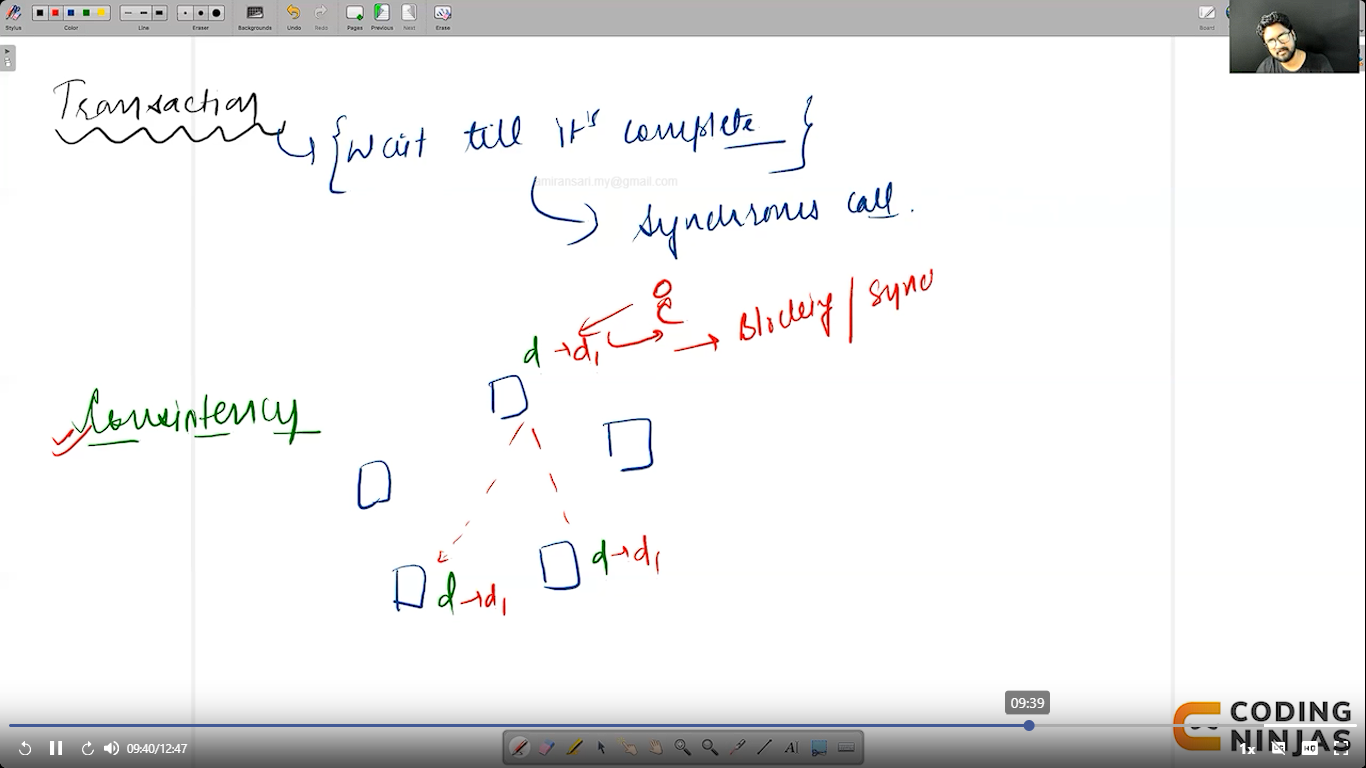 Stylus Color Line Eraser Backgrounds Undo Redo Pages Previous Next Erase Board
Transaction
{Wait till it's complete}
amiransari.my@gmail.com
Synchrones call.
d → d1 → Blocking / Sync
Consintency
d → d1
d → d1
09:39
CODING
NINJAS
09:40/12:47
1x
HD